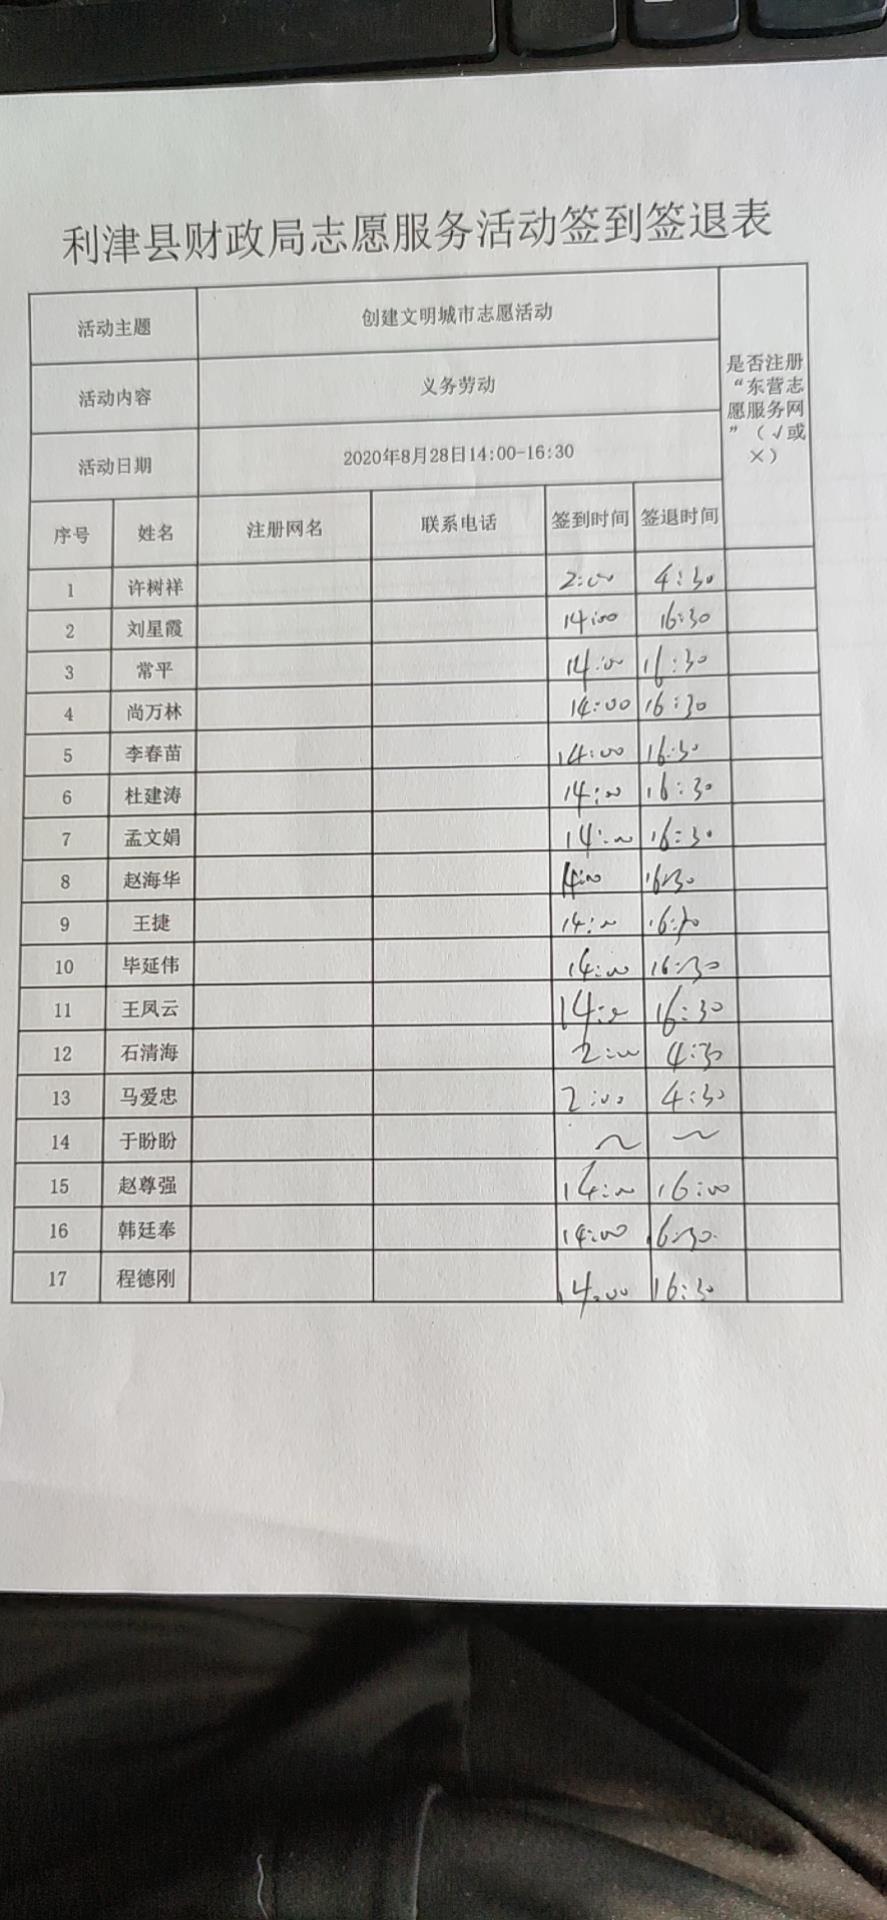 利津县财政局志愿服务活动签到签退表
活动主题 创建文明城市志愿活动
活动内容 义务劳动
活动日期 2020年8月28日14:00-16:30
是否注册
“东营志
愿服务网
”（√或
×）
序号 姓名 注册网名 联系电话 签到时间 签退时间
1 许树祥 2:00 4:30
2 刘星霞 14:00 16:30
3 常平 14:00 16:30
4 尚万林 14:00 16:30
5 李春苗 14:00 16:30
6 杜建涛 14:00 16:30
7 孟文娟 14:00 16:30
8 赵海华 14:00 16:30
9 王捷 14:00 16:30
10 毕延伟 14:00 16:30
11 王凤云 14:00 16:30
12 石清海 2:00 4:30
13 马爱忠 2:00 4:30
14 于盼盼 ~ ~
15 赵尊强 14:00 16:00
16 韩廷奉 14:00 16:30
17 程德刚 14:00 16:30